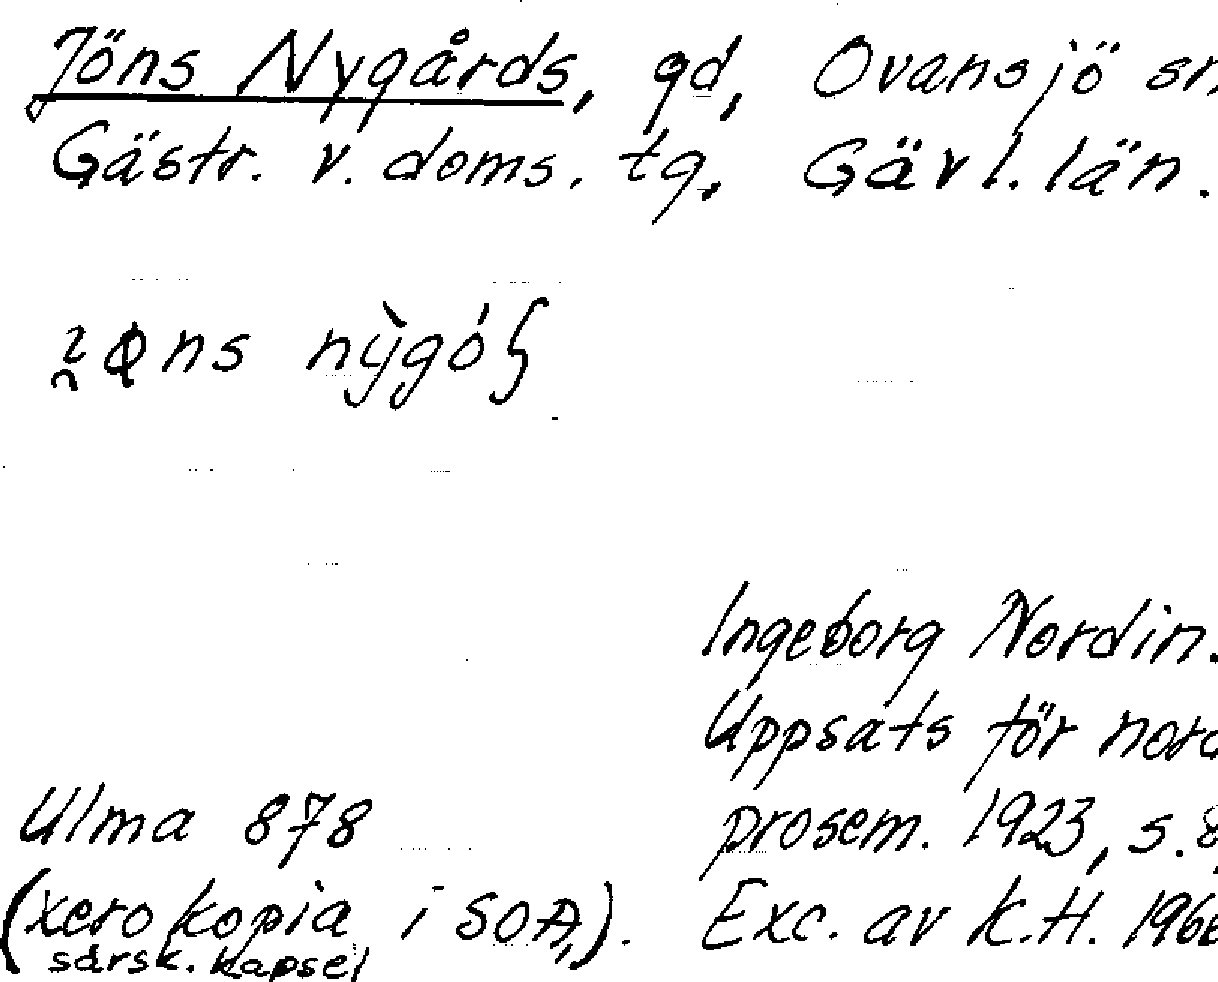 Jöns Nygårds, gd, Ovansjö sn,
Gästr. v. doms. tg, Gävl. län.
nỳgó
Ingeborg Nordin.
Uppsats för nord
prosem. 1923, s. 8
Ulma 878
(xerokopia i SOA,).
Exc. av K.H. 1966
särsk. kapsel